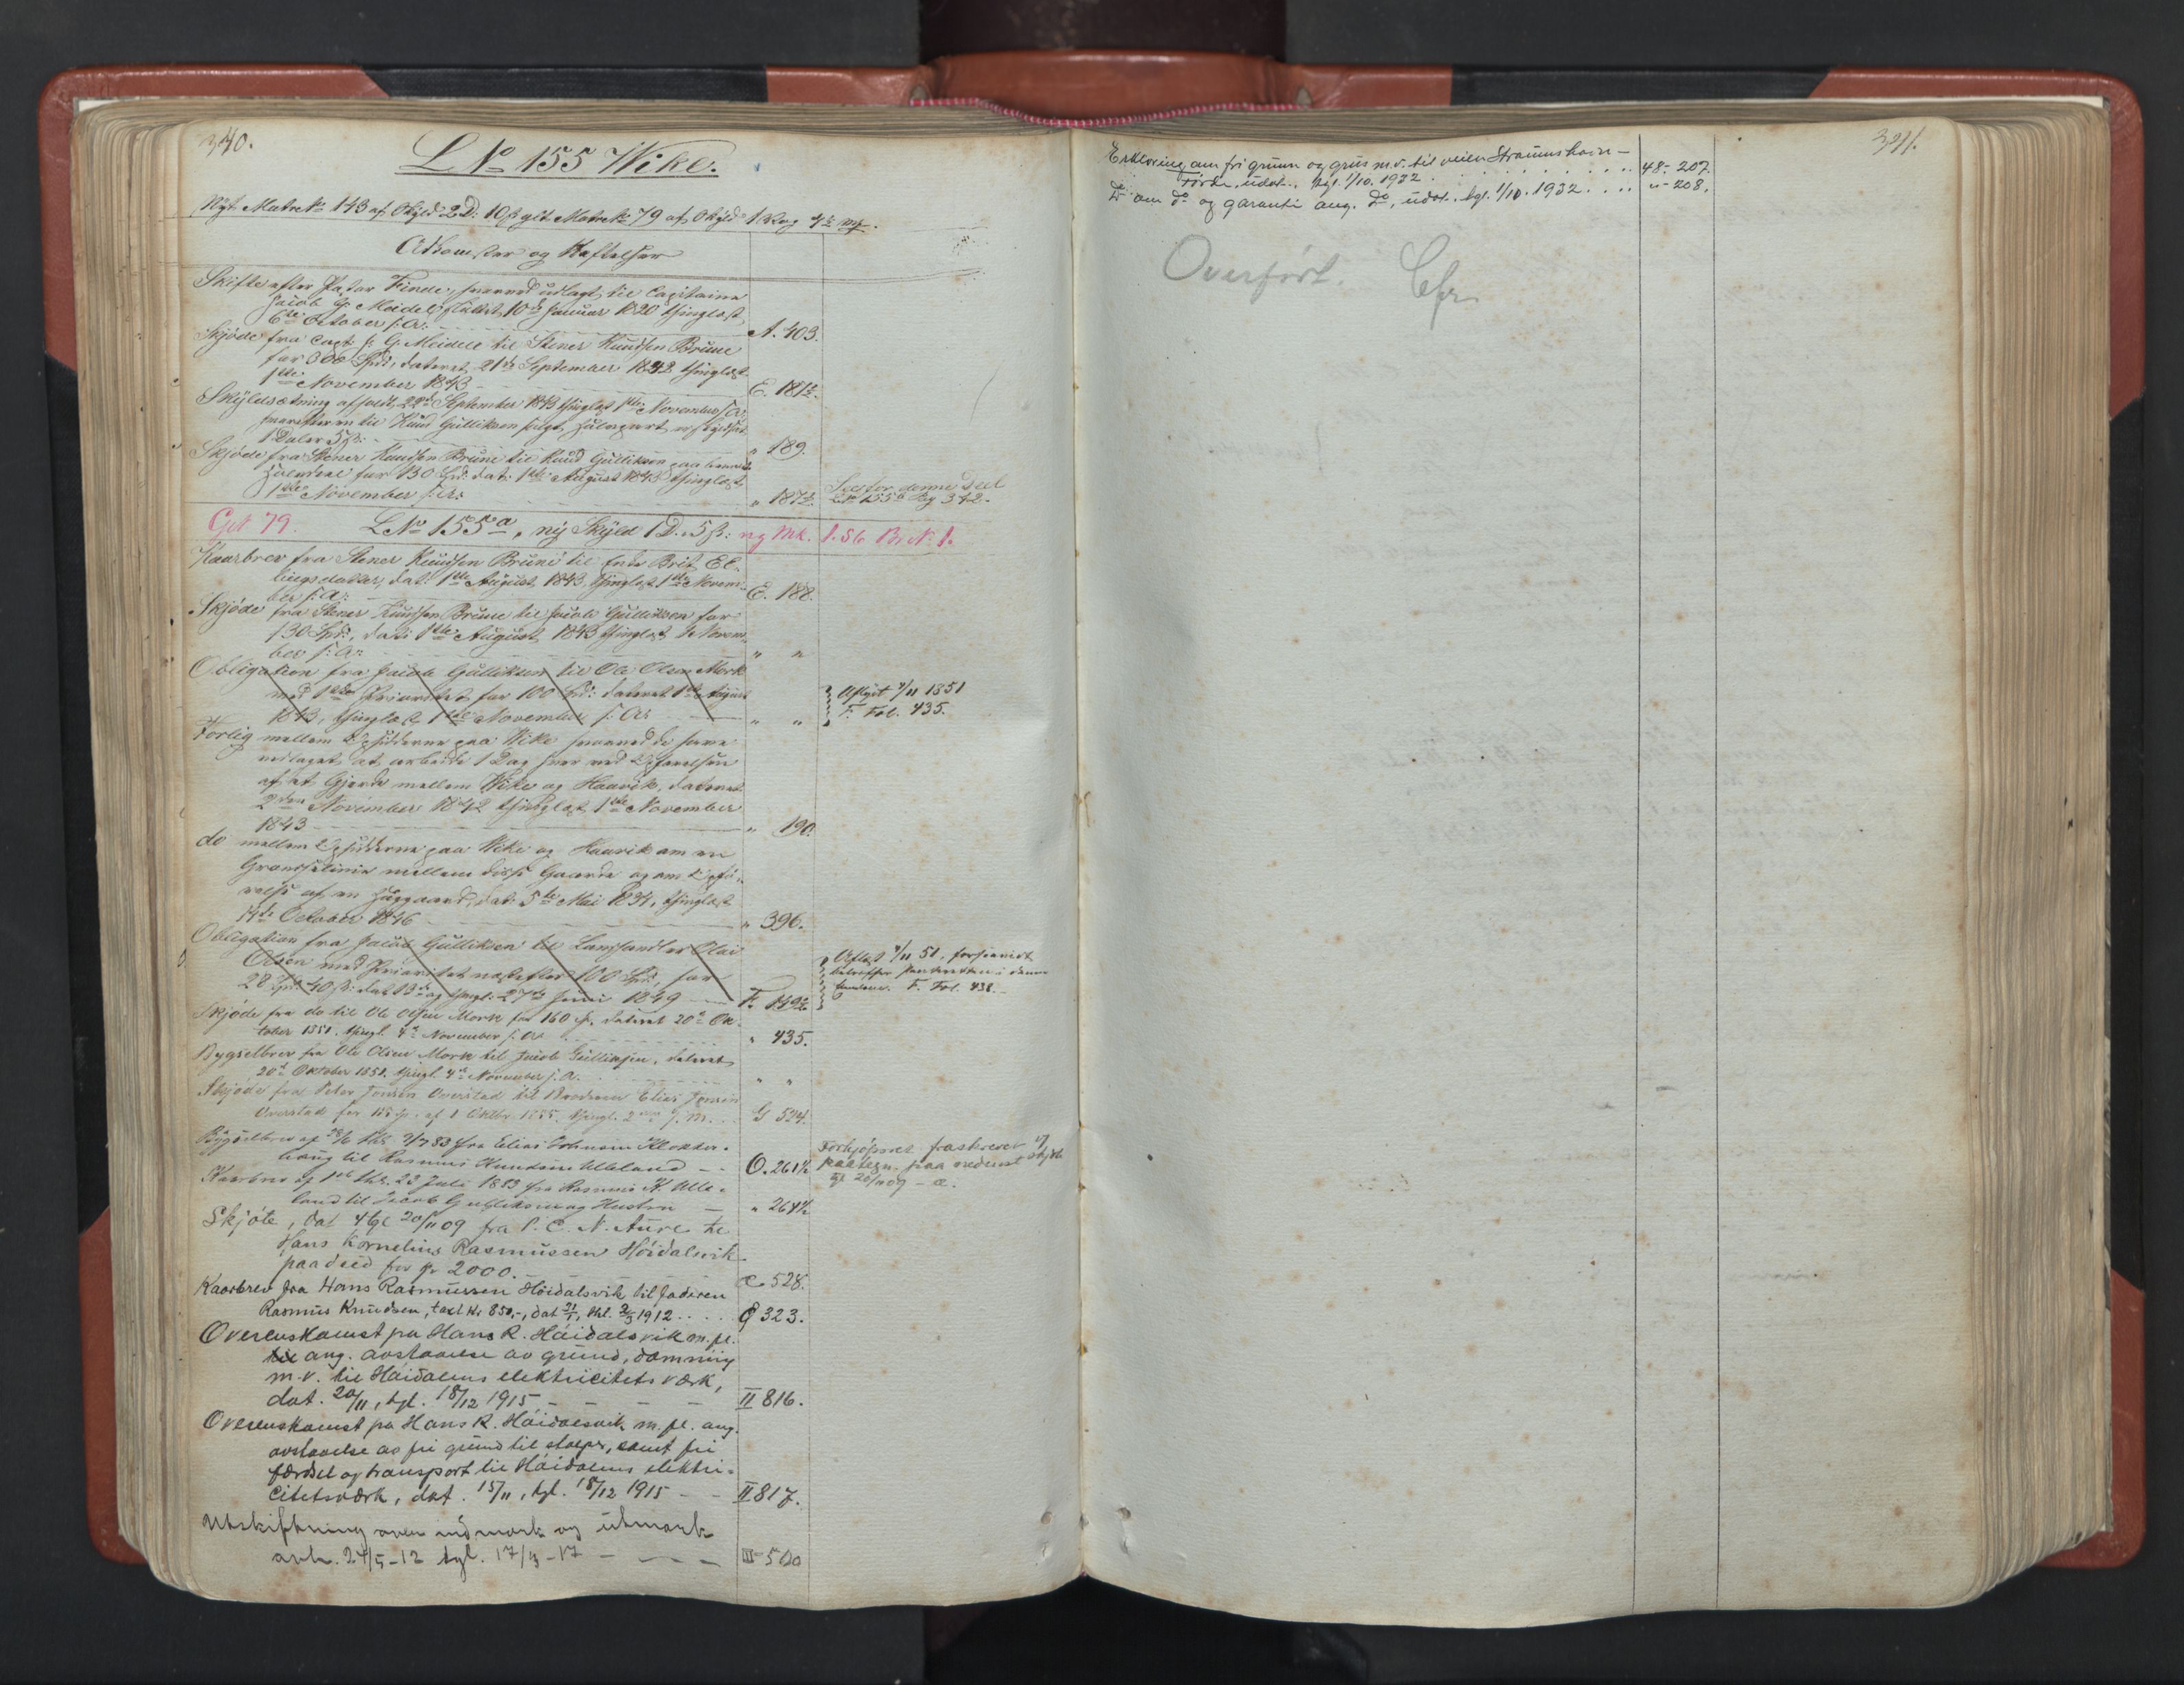 340.
L No 155 Wike.
Nyt Matr No 143 af Skyld 2 D. 10 ß glt Matr No 79 af Skyld 1
Adkomster og Heftelser
Skifte efter Peder Finde, hvorved udlagt til Capitaine
Meidel, sluttet 10de Januar 1820 thinglæst
6te October s: A: A. 403.
Skjøde fra Capt: J. G. Meidell til Stener Knudsen Brune
for 300 Spd:, dateret 21de September 1842 thinglæst
1ste November 1843 E. 181½.
Skyldsætning afholdt 22de September 1843 thinglæst 1ste November s: A:
hvorefter en til Knud Gulliksen solgt Halvpart er skyldsat
1 Daler 5 ß: " 189.
Skjøde fra Stener Knudsen Brune til Knud Gulliksen paa bemeldte
Halvdeel for 130 Spd: dat: 1ste August 1843 thinglæst
1ste November s: A: " 187½. See for denne Deel
L No 155b Pag 342.
Gd 79. L No 155a, ny Skyld 1 D. 5 ß: ny Mk. 1.56 Br. No 1.
Kaarbrev fra Stener Knudsen Brune til Enke Brit El-
lingsdatter, dat: 1ste August 1843, thinglæst 1ste Novem-
ber s: A: E. 188.
Skjøde fra Stener Knudsen Brune til Jacob Gulliksen for
130 Spd:, dat: 1ste August 1843 thinglæst 1te Novem-
ber s: A: " "
Obligation fra Jacob Gulliksen til Ole Olsen Mork
med 1ste Prioritet for 100 Spd: dateret 1ste August
1843, thinglæst 1ste November s: A: " " Aflyst 4/11 1851
F. Fol. 435.
Forlig mellem Opsidderne paa Wike hvorved de have
vedtaget, at arbeide 1 Dag hver ved Opførelsen
af et Gjerde mellem Wike og Haavik, dateret
2den November 1842 thinglæst 1ste November
1843 " 190.
do mellem Opsidderne paa Wike og Haavik om en
Grændselinie mellem disse Gaarde og om Opfø-
relse af en dat: 5te Mai 1834, thinglæst
14de October 1846 " 396.
Obligation fra Jacob Gulliksen til Landhandler Elias
Olsen med Prioritet næstefter 100 Spd, for
28 Spd: 40 ß: dat 13de og thingl: 27de Juni 1849 F. 149½ Aflæst 4/11 51, forsaavidt
betræffer Panteretten i denne
Eiendom. F. Fol. 438.
Skjøde fra do til Ole Olsen Mork for 160 Sp. dateret 20de Ok-
tober 1851. thingl. 4de November s. A. " 435.
Bygselbrev fra Ole Olsen Mork til Jacob Gulliksen, dateret
20de Oktober 1851. thingl. 4de November s. A. " "
Skjøde fra Peter Jonsen Overstad til Broderen Elias Jonsen
Overstad for 155 Sp. af 1 Oktbr. 1855. thingl. 2 s. M. G 524.
Bygselbrev af 28/6 thl. 2/7 83 fra Elias Johnsen Klokker-
haug til Rasmus Knudsen Ulleland O. 261½ Forkjøpsret fraskrevet if.
paategn. paa nedenst. skjøte
tgl 20/11 09 – æ.
Kaarbrev af thl. 23 Juli 1883 fra Rasmus K. Ulle-
land til Jacob Gulliksen og Hustru " 264½
Skjöte, dat 4 tgl 20/11 09 fra P. C. N. Aure til
Hans Kornelius Rasmussen Höidalsvik
paa deed for kr 2000. Æ 528.
Kaarbrev fra Hans Rasmussen Höidalsvik til faderen
Rasmus Knudsen, taxt kr 850,-, dat 31/1, thl. 2/3 1912 Ø 323.
Overenskomst fra Hans R. Höidalsvik m. fl.
til ang. avstaaelse av grund, damning
m. v. til Höidalens elektricitetsværk,
dat. 20/11, tgl. 18/12 1915. II 816.
Overenskomst fra Hans R. Höidalsvik m. fl. ang.
avstaaelse av fri grund til stolper, samt fri
færdsel og transport til Höidalens elektri-
citetsværk, dat. 15/11, tgl. 18/12 1915 II 817.
Utskiftning over indmark og utmark
avh. 24/5-12 tgl. 17/3-17 III-500
341.
Erklæring om fri grunn og grus m.v. til veien Straumshavn –
Förde, udat., tgl. 1/10. 1932 48-207.
Do om do og garanti ang. do, udat. tgl. 1/10. 1932 "-208.
Overfört. Cfr.